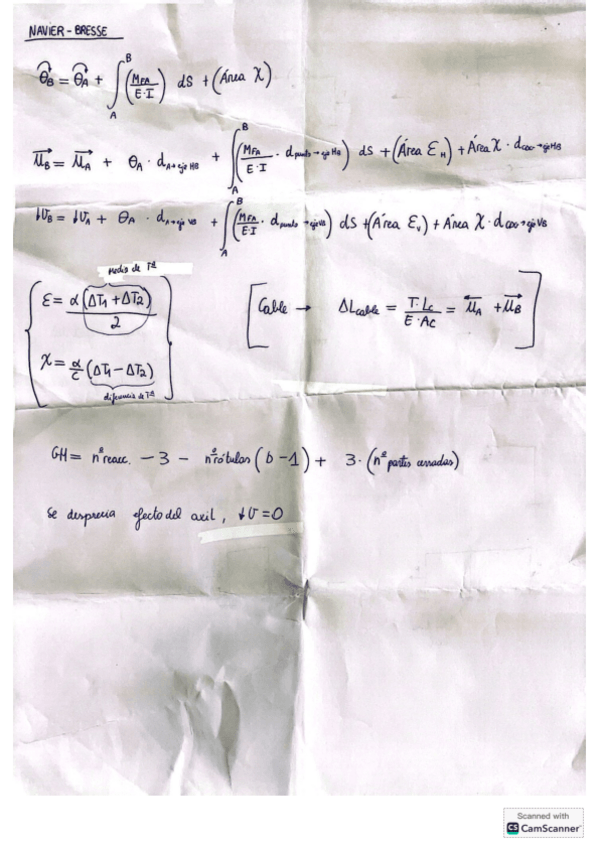 NAVIER-BRESSE
θ_B = θ_A + ∫_A^B (M_FA / E·I) dS + (Área χ)
u_B = u_A + θ_A · d_A→eje HB + ∫_A^B (M_FA / E·I · d_punto→eje HB) dS + (Área ε_H) + Área χ · d_CDG→eje HB
↓v_B = ↓v_A + θ_A · d_A→eje VB + ∫_A^B (M_FA / E·I · d_punto→eje VB) dS + (Área ε_v) + Área χ · d_CDG→eje VB
Media de Tª
ε = α (ΔT1 + ΔT2) / 2
[Cable → ΔL_cable = T·L_c / E·A_c = u_A + u_B]
χ = α/c (ΔT1 - ΔT2)
diferencia de Tª
GH = nºreacc. - 3 - nºrótulas (b - 1) + 3 · (nº partes cerradas)
Se desprecia efecto del axil, ↓v = 0
Scanned with
CS CamScanner